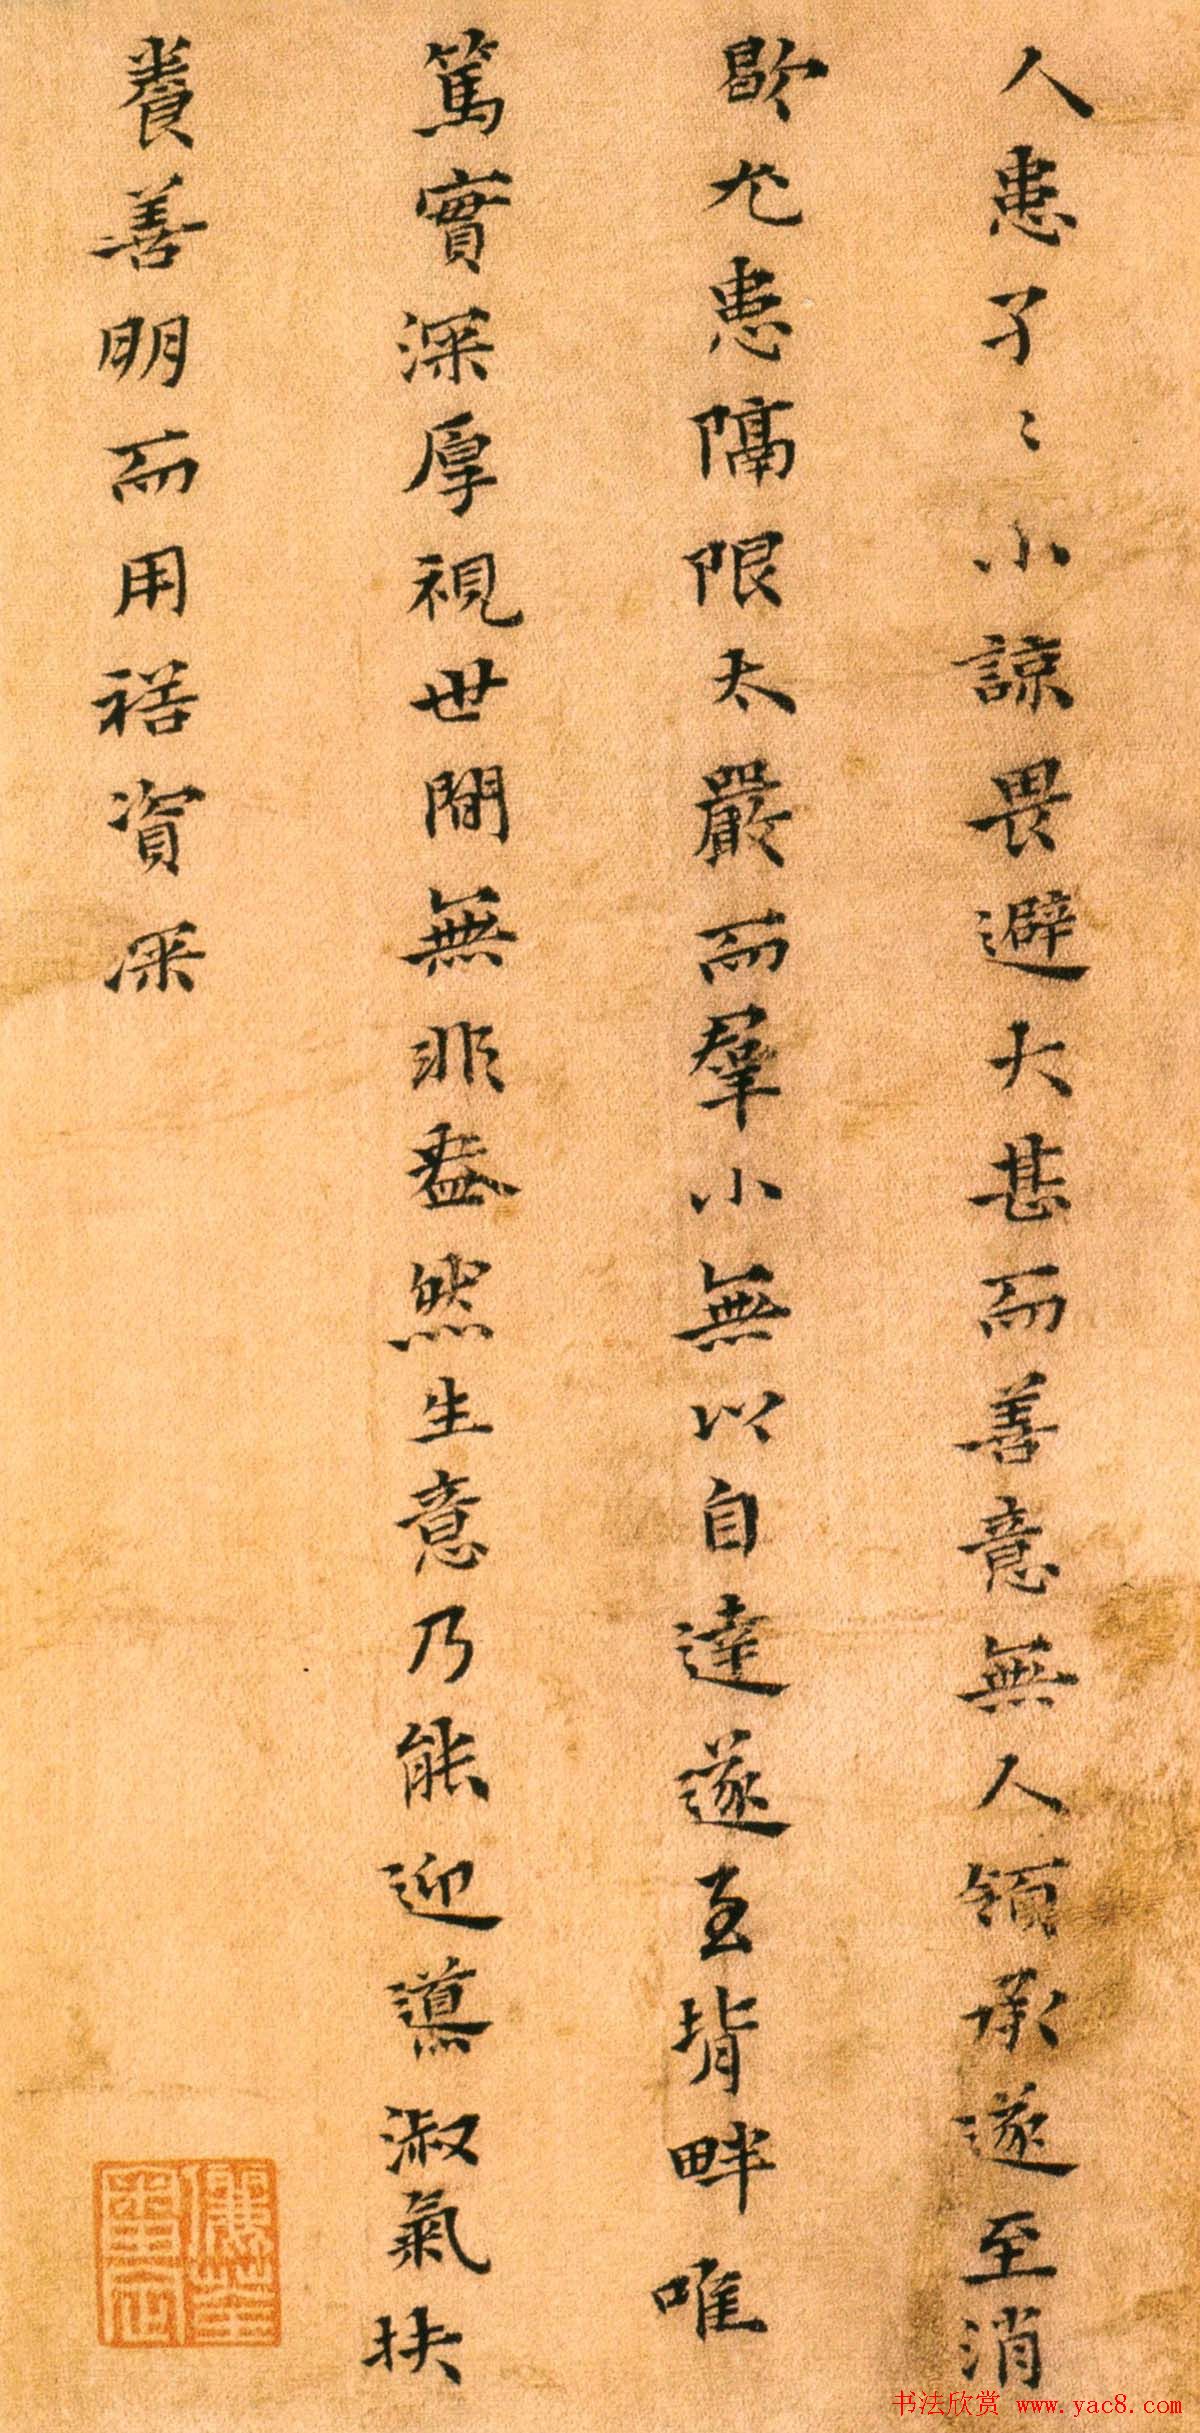 人患孑〻小諒畏避大甚而善意無人領承遂至消
歇尤患隔限太嚴而羣小無以自達遂至背畔唯
篤實深厚視世間無非盎然生意乃能迎導淑氣扶
養善明而用資深
书法欣赏 www.yac8.com